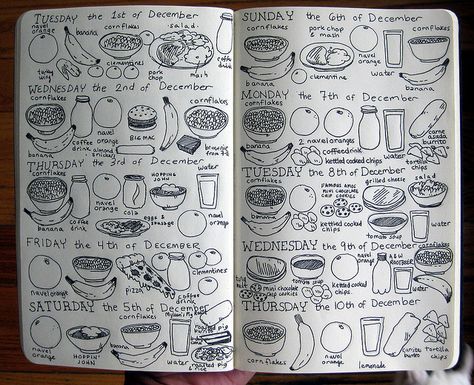 TUESDAY the 1st of December
navel orange
banana
cornflakes
salad
turkey wing
clementines
pork chop
mash
coffee drink
WEDNESDAY the 2nd of December
cornflakes
banana
coffee drink
navel orange
BIG MAC
banana
cornflakes
brownie from
THURSDAY the 3rd of December
cornflakes
banana
coffee drink
navel orange
cola
HOPPING JOHN
eggs & sausage
water
navel orange
FRIDAY the 4th of December
navel orange
banana
cornflakes
pizza
coffee drink
clementines
SATURDAY the 5th of December
navel orange
HOPPIN' JOHN
cornflakes
banana
water
roasted pig
roasted pig & rice
SUNDAY the 6th of December
cornflakes
banana
pork chop & mash
clementine
navel orange
water
cornflakes
banana
MONDAY the 7th of December
cornflakes
banana
2 navel oranges
coffee drink
kettled cooked chips
water
carne asada burrito
tortilla chips
TUESDAY the 8th of December
cornflakes
banana
navel orange
FAMOUS AMOS MINI CHOCOLATE CHIP COOKIES
kettled cooked chips
grilled cheese
tomato soup
salad
water
WEDNESDAY the 9th of December
banana
mini chocolate chip cookies
tomato soup
kettled cooked chips
navel orange
A & W ROOTBEER
water
kettled cooked chips
cornflakes
banana
THURSDAY the 10th of December
cornflakes
banana
navel orange
lemonade
burrito
tortilla chips